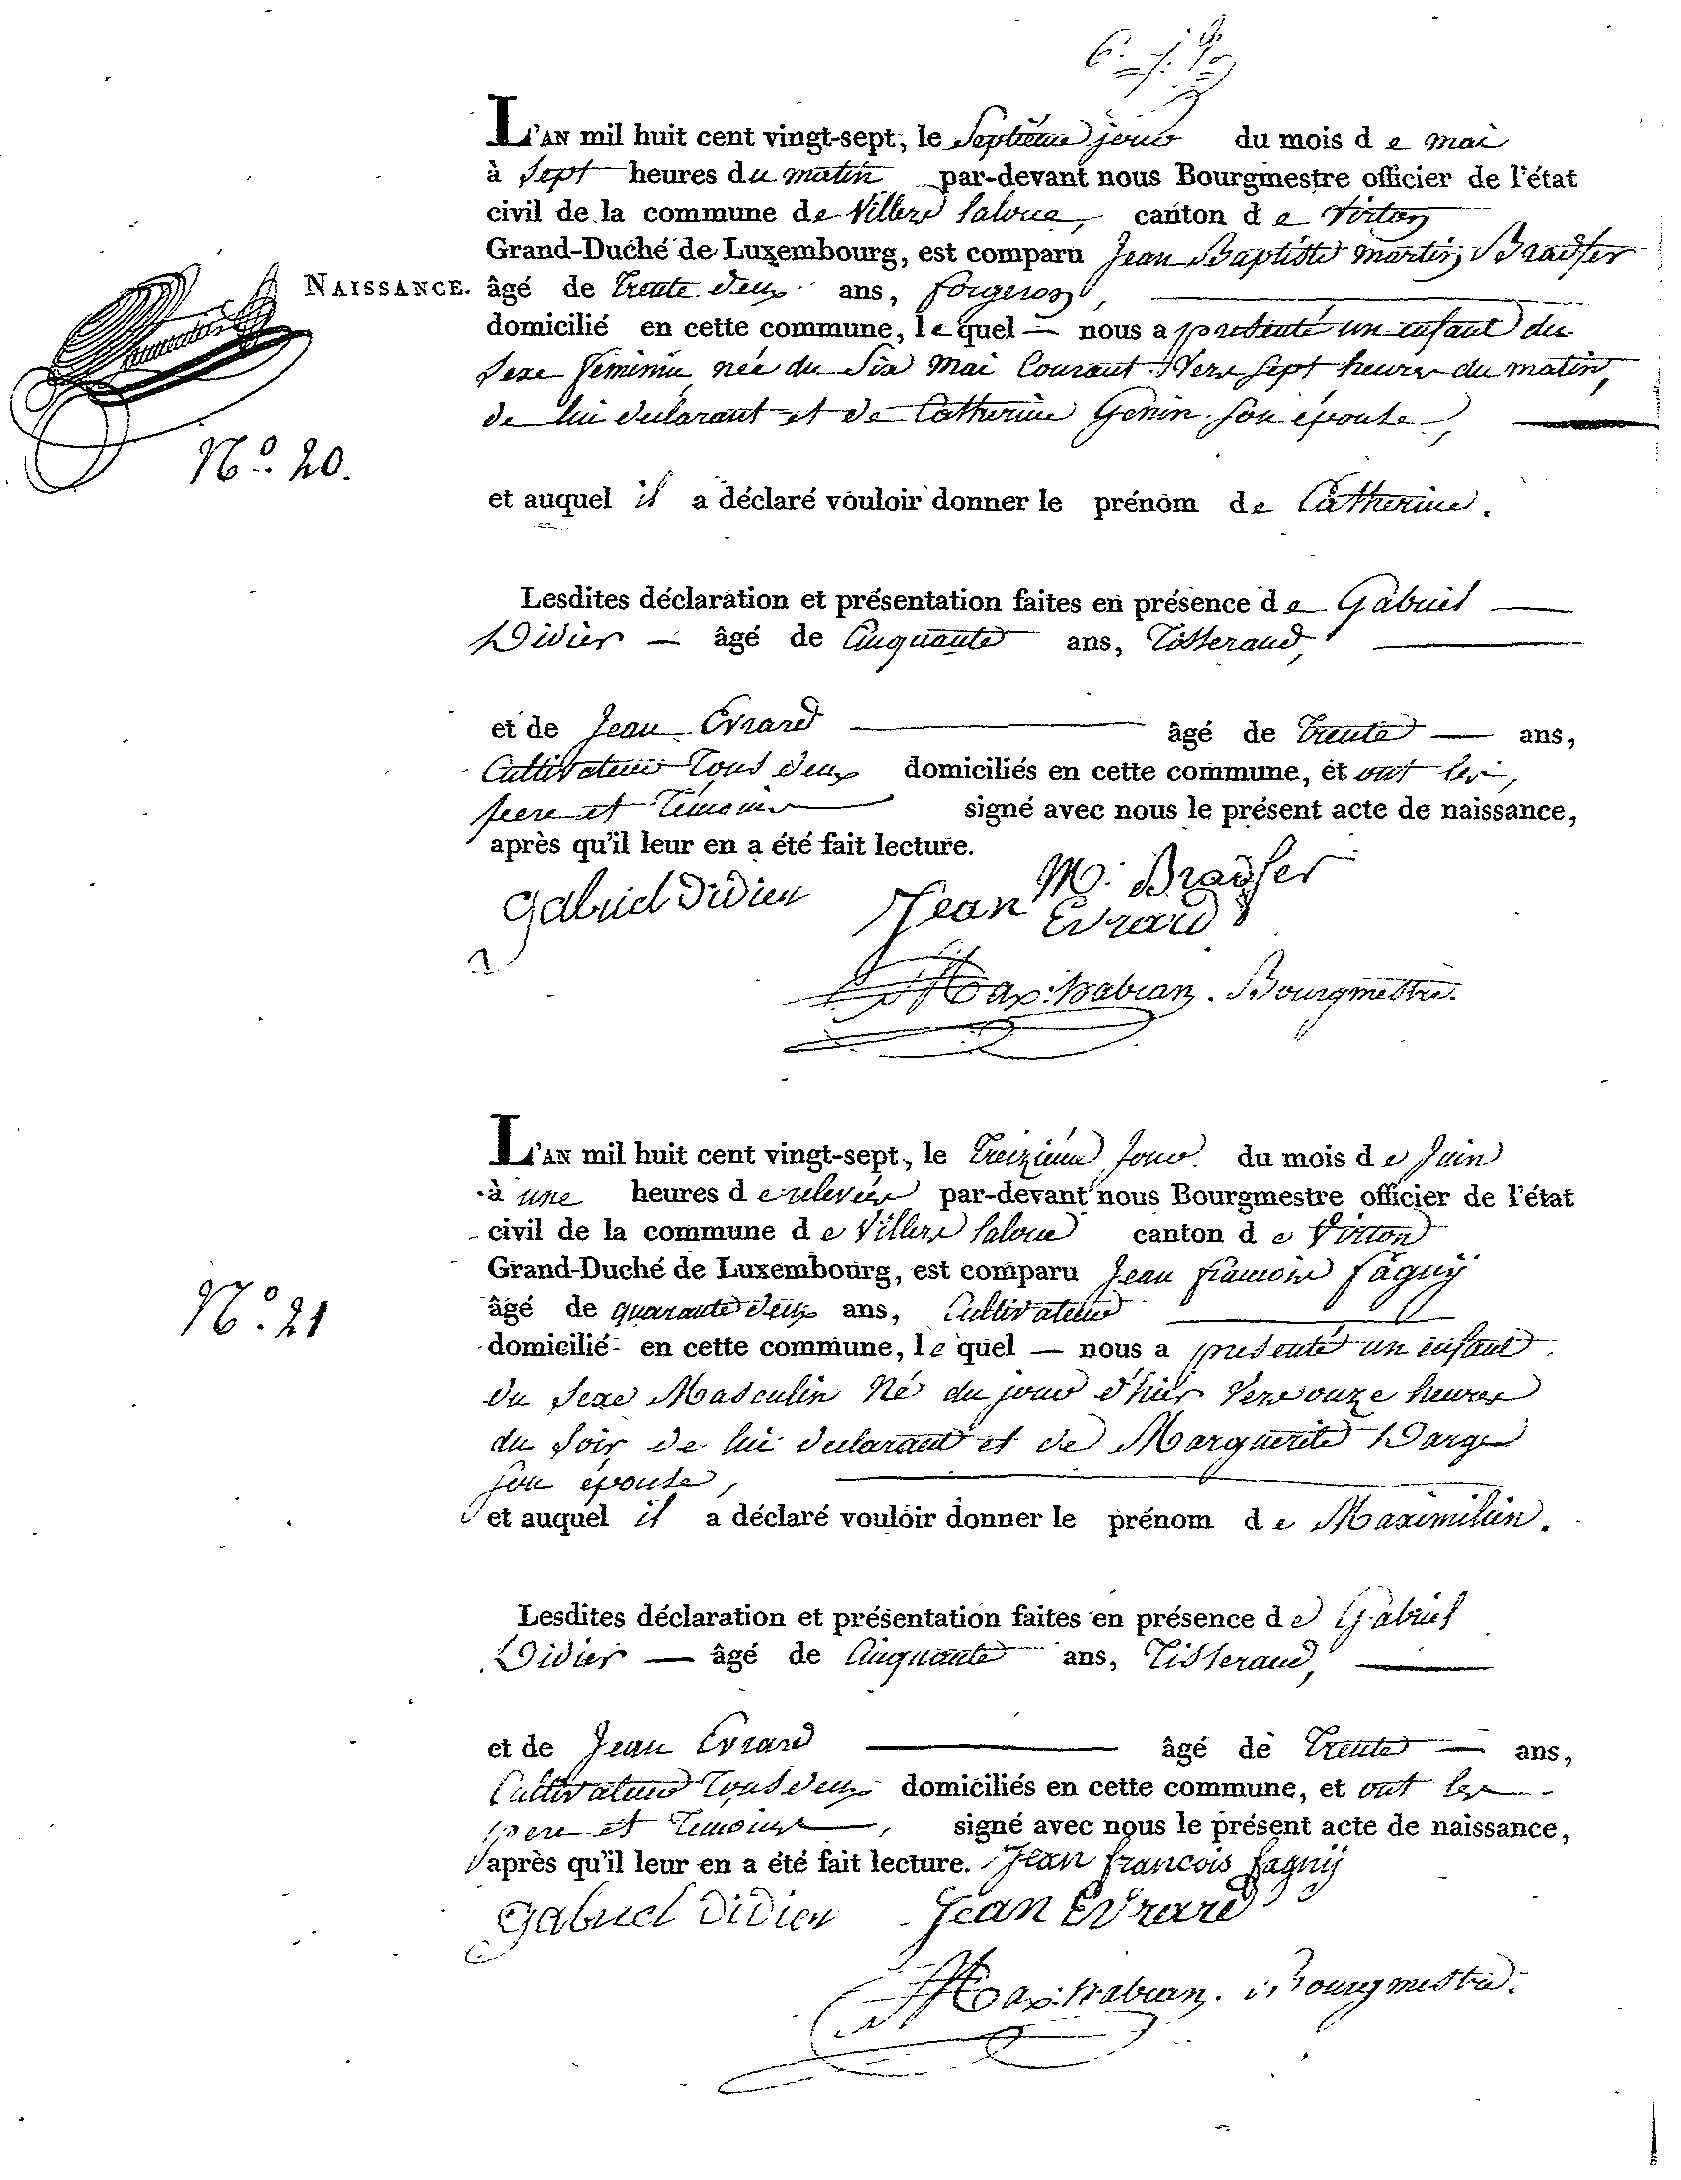 L'AN mil huit cent vingt-sept, le Septiéme jour du mois de mai
à Sept heures du matin par-devant nous Bourgmestre officier de l'état
civil de la commune de Villers laloue, canton de Virton
Grand-Duché de Luxembourg, est comparu Jean Baptiste martin Bradfer
NAISSANCE. âgé de trente deux ans, forgeron,
domicilié en cette commune, lequel — nous a presenté un enfant du
Sexe feminin née du Six mai Courant Vers Sept heures du matin,
de lui declarant et de Catherine Genin Son épouse,
N.º 20.
et auquel il a déclaré vouloir donner le prénom de Catherine.
Lesdites déclaration et présentation faites en présence de Gabriel
Didier — âgé de Cinquante ans, Tisserand,
et de Jean Evrard âgé de trente — ans,
Cultivateur Tous deux domiciliés en cette commune, et ont les
pere et Témoins signé avec nous le présent acte de naissance,
après qu'il leur en a été fait lecture.
M. Bradfer
Gabriel Didier Jean Evrard
Max: Bourgmestre.
L'AN mil huit cent vingt-sept, le treiziéme Jour du mois de Juin
à une heures de relevée par-devant nous Bourgmestre officier de l'état
civil de la commune de Villers laloue canton de Virton
Grand-Duché de Luxembourg, est comparu Jean francois fagny
N.º 21
âgé de quarante deux ans, Cultivateur
domicilié en cette commune, lequel — nous a presenté un enfant
du Sexe Masculin Né du jour d'hier Vers onze heures
du Soir, de lui declarant et de Marguerite Darge
Son épouse,
et auquel il a déclaré vouloir donner le prénom de Maximilien.
Lesdites déclaration et présentation faites en présence de Gabriel
Didier — âgé de Cinquante ans, Tisserand,
et de Jean Evrard âgé de trente — ans,
Cultivateur Tous deux domiciliés en cette commune, et ont les
pere et Témoins, signé avec nous le présent acte de naissance,
après qu'il leur en a été fait lecture. Jean francois fagny
Gabriel Didier Jean Evrard
Max: Bourgmestre.